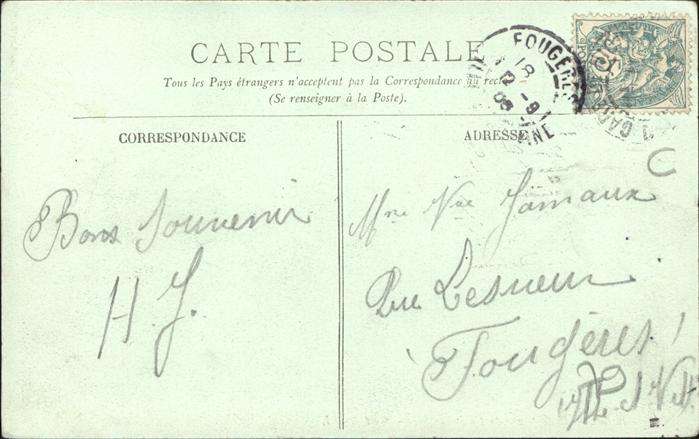 CARTE POSTALE
Tous les Pays étrangers n'acceptent pas la Correspondance au recto
(Se renseigner à la Poste).
CORRESPONDANCE
ADRESSE
FOUGÈRES
18
12
Bons Souvenir
H. J.
Mme Vve Jamaux
Rue Lesueur
à Fougères
Ille et Vil